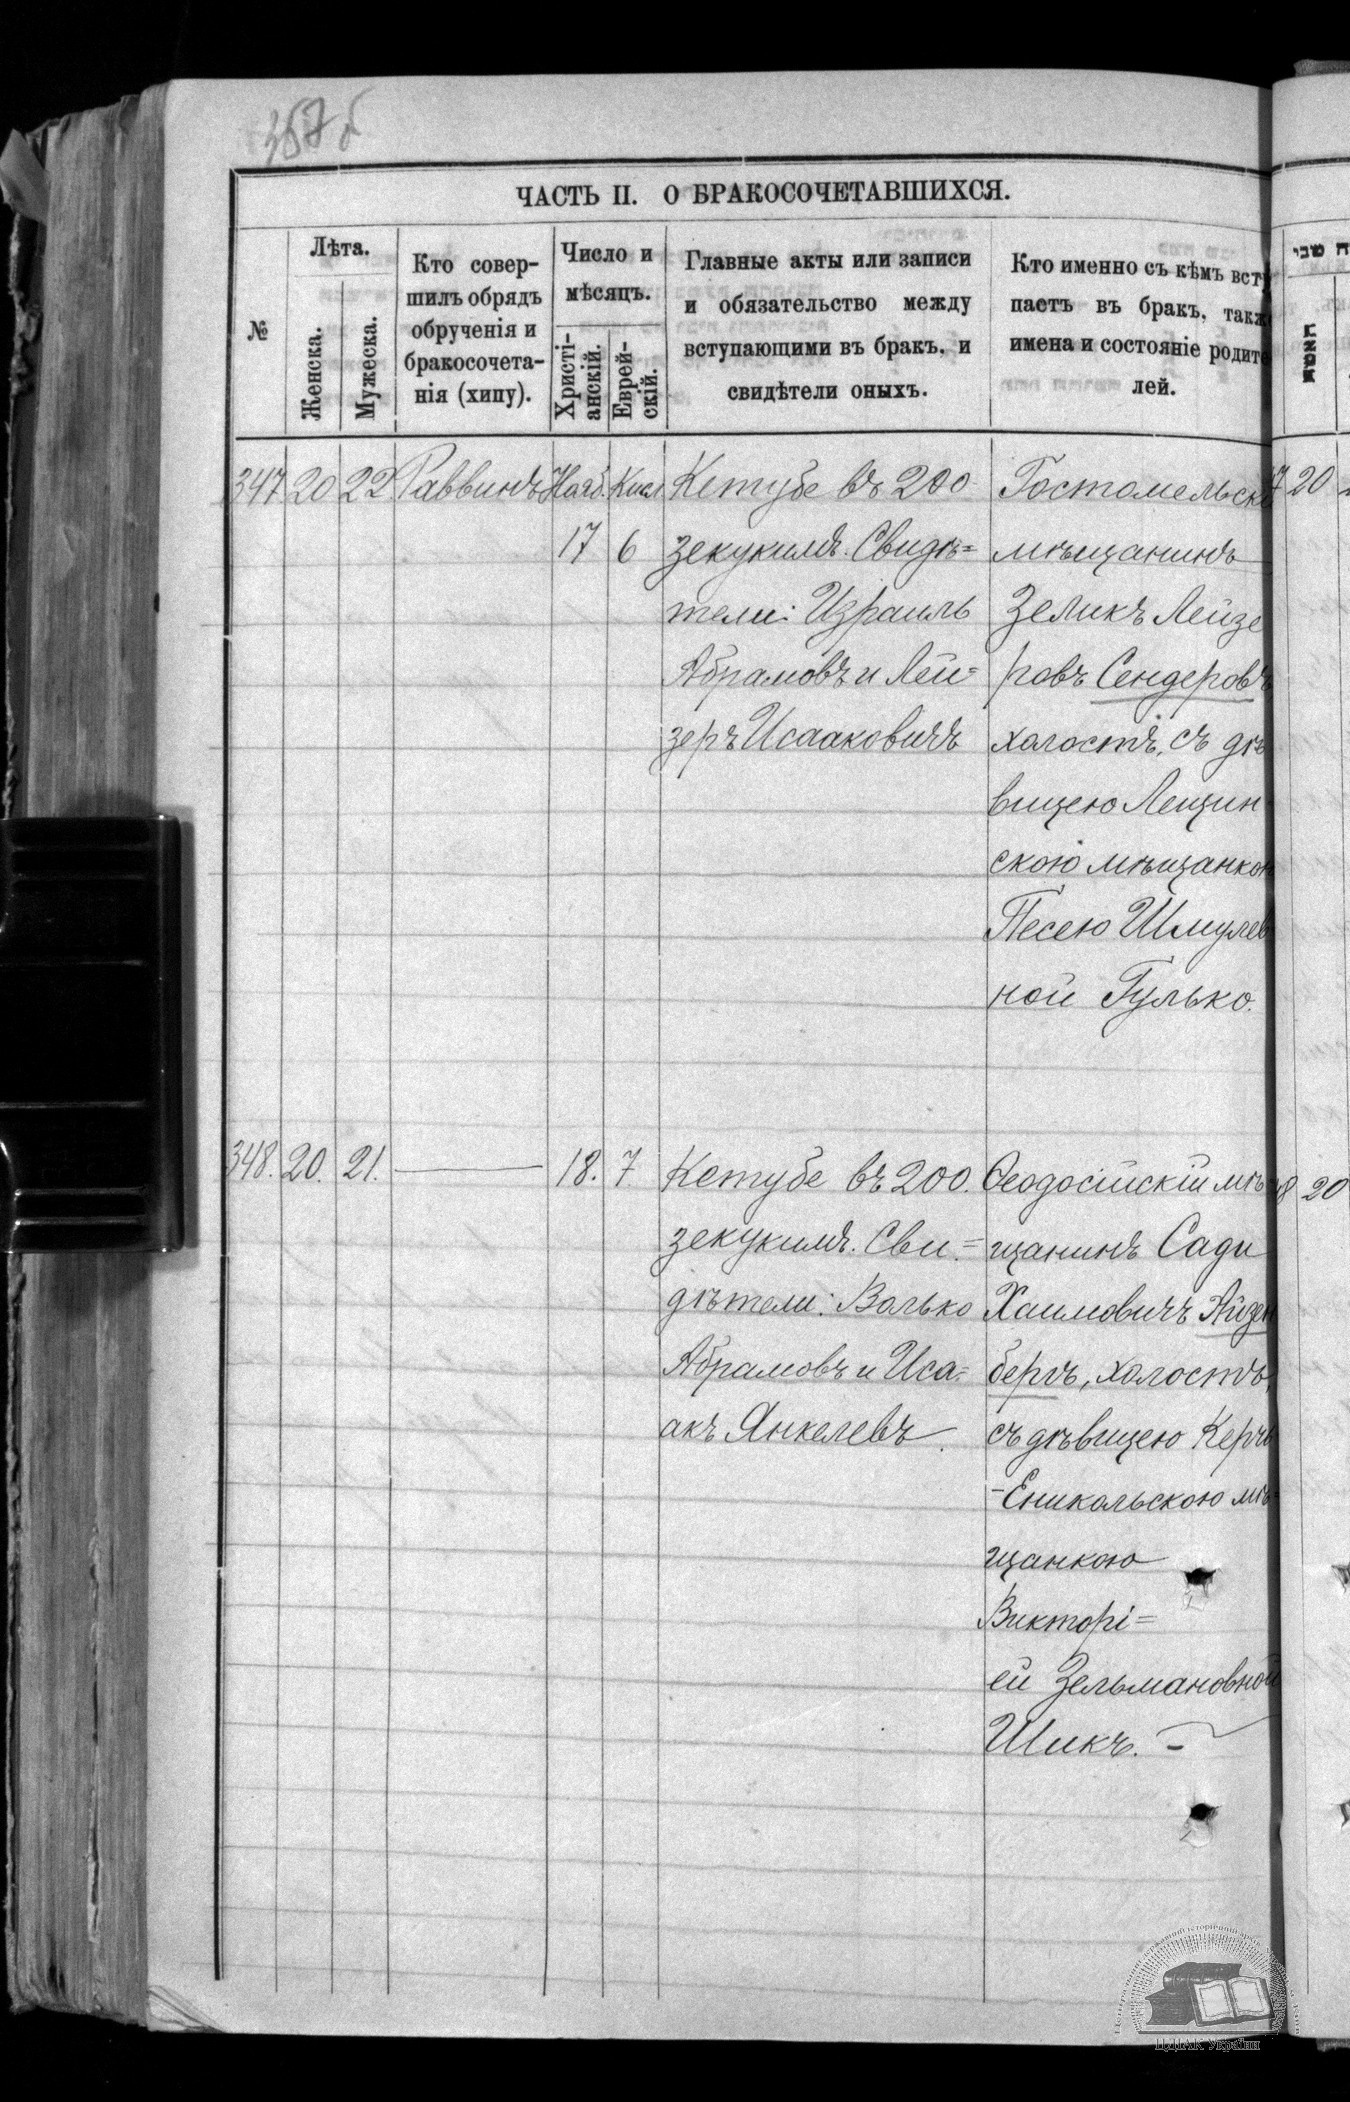 357 б
ЧАСТЬ II. О БРАКОСОЧЕТАВШИХСЯ.
№
Лѣта.
Женска.
Мужеска.
Кто совер-
шилъ обрядъ
обрученія и
бракосочета-
нія (хипу).
Число и
мѣсяцъ.
Христі-
анскій.
Еврей-
скій.
Главные акты или записи
и обязательство между
вступающими въ бракъ, и
свидѣтели оныхъ.
Кто именно съ кѣмъ всту
паетъ въ бракъ, такж
имена и состояніе родите
лей.
347 20 22 Раввинъ Нояб. Кисл
17 6
Кетубе въ 200
зекукимъ. Свидѣ=
тели: Израиль
Абрамовъ и Лей=
зеръ Исааковичъ
Гостомельскі
мѣщанинъ
Зеликъ Лейзе
ровъ Сендеровъ
холостъ, съ дѣ
вицею Лещин
скою мѣщанкою
Песею Шмулев
ной Гулько.
348. 20. 21. — 18. 7
Кетубе въ 200.
зекукимъ. Сви=
дѣтели: Волько
Абрамовъ и Иса=
акъ Янкелевъ.
Ѳеодосійскій мѣ
щанинъ Сади
Хаимовичъ Айзен
бергъ, холостъ,
съ дѣвицею Керчь
-Еникольскою мѣ=
щанкою
Викторі=
ей Зельмановной
Шикъ. -
7 20
8 20
ЦДІАК України